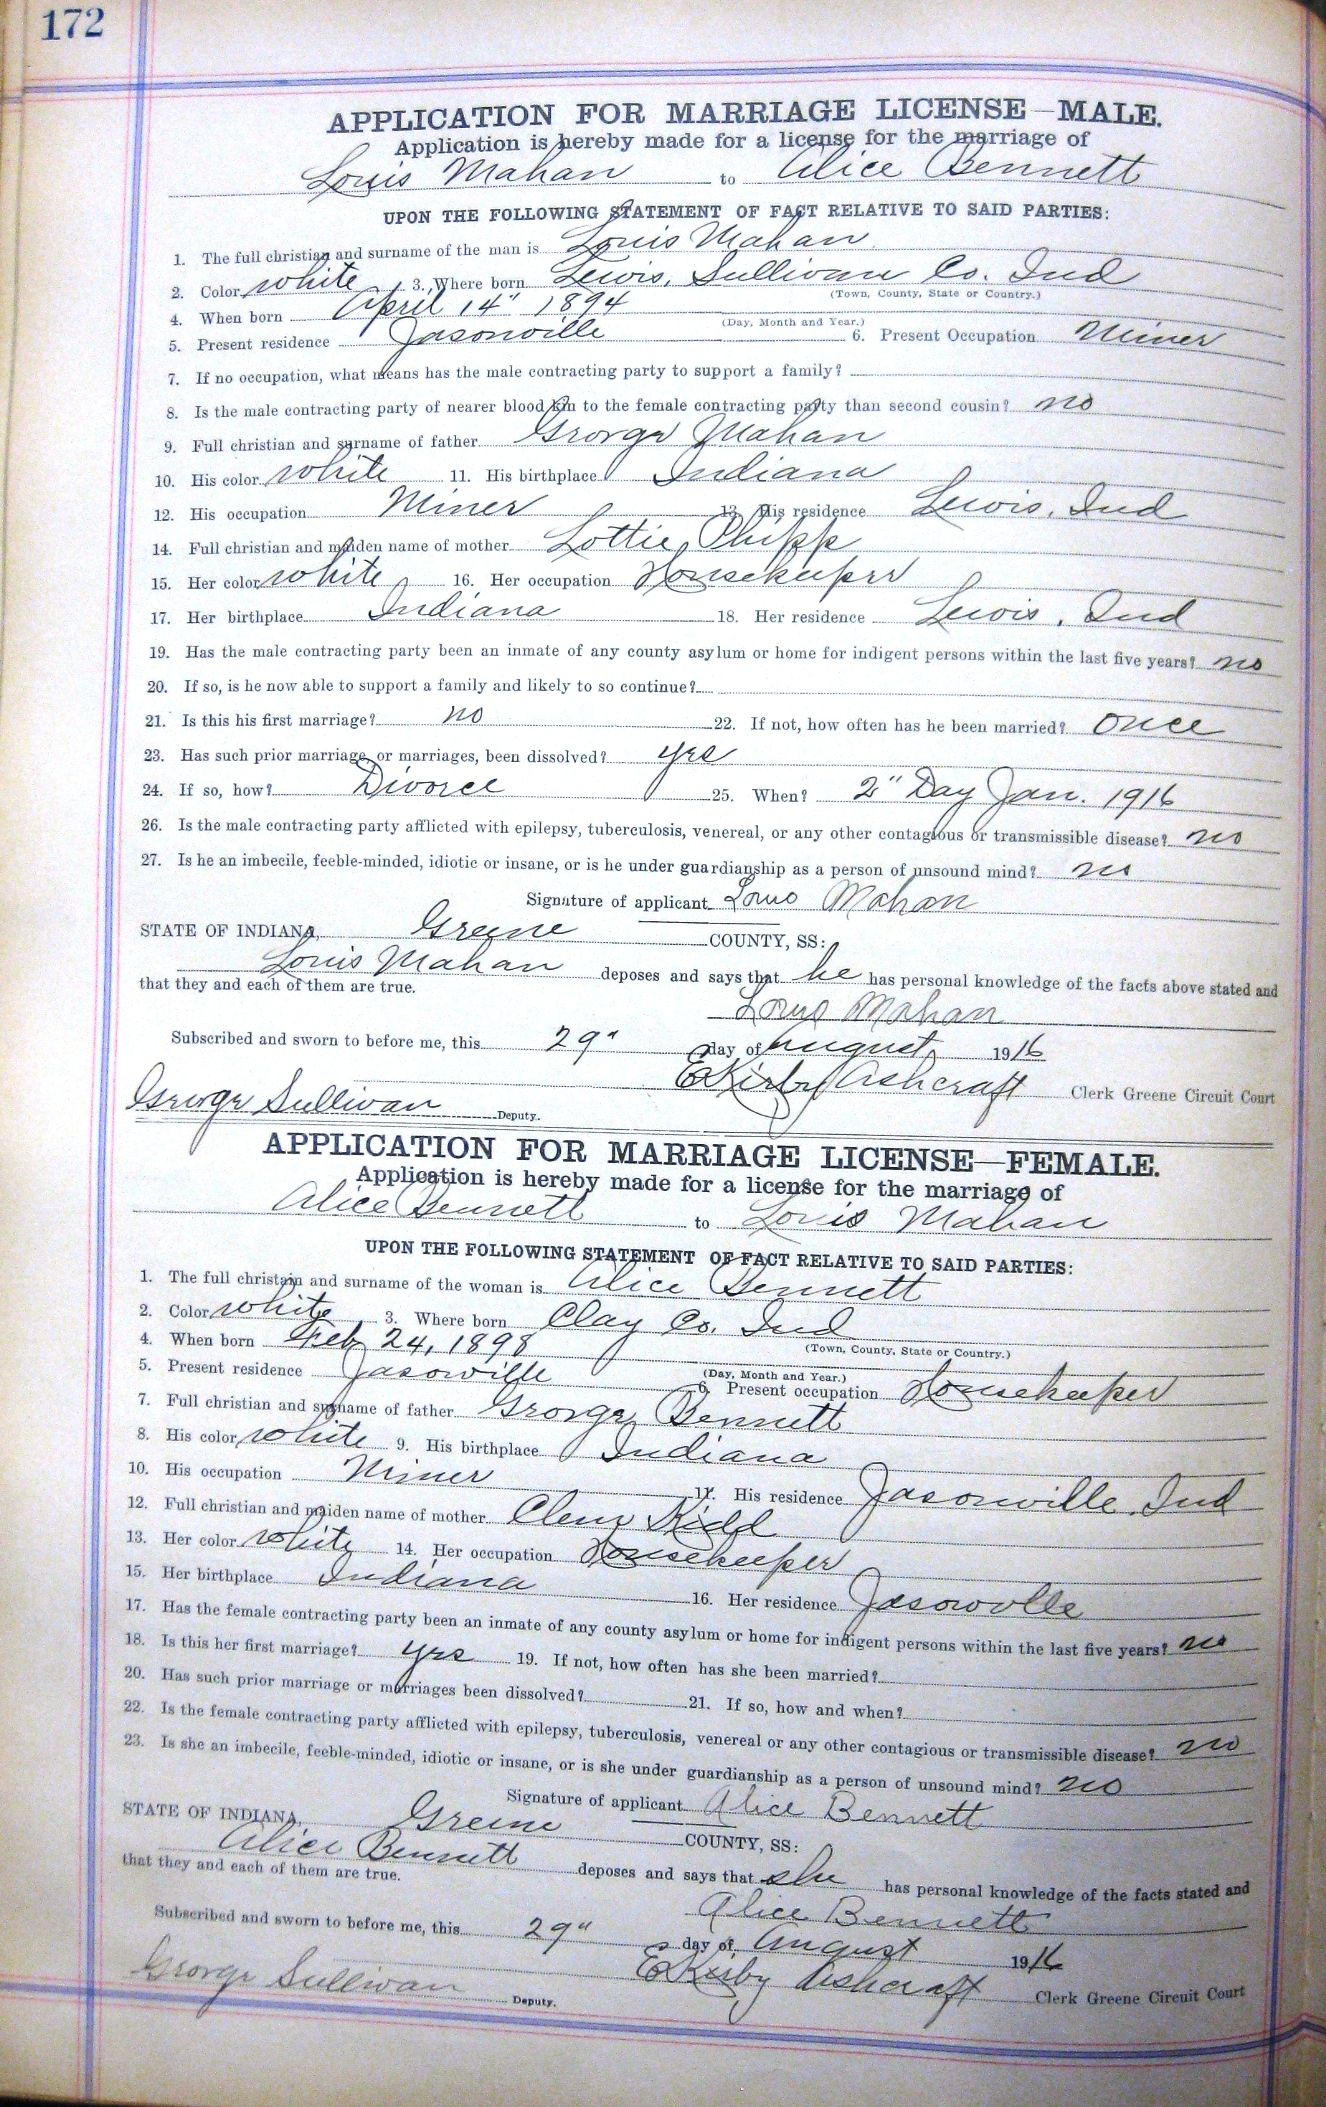 172
APPLICATION FOR MARRIAGE LICENSE—MALE.
Application is hereby made for a license for the marriage of
Louis Mahan to Alice Bennett
UPON THE FOLLOWING STATEMENT OF FACT RELATIVE TO SAID PARTIES:
1. The full christian and surname of the man is Louis Mahan
2. Color white 3. Where born Lewis, Sullivan Co. Ind
(Town, County, State or Country.)
4. When born April 14" 1894
(Day, Month and Year.)
5. Present residence Jasonville 6. Present Occupation Miner
7. If no occupation, what means has the male contracting party to support a family?
8. Is the male contracting party of nearer blood kin to the female contracting party than second cousin? no
9. Full christian and surname of father George Mahan
10. His color white 11. His birthplace Indiana
12. His occupation Miner 13. His residence Lewis, Ind
14. Full christian and maiden name of mother Lottie Phipp
15. Her color white 16. Her occupation Housekeeper
17. Her birthplace Indiana 18. Her residence Lewis, Ind
19. Has the male contracting party been an inmate of any county asylum or home for indigent persons within the last five years? no
20. If so, is he now able to support a family and likely to so continue?
21. Is this his first marriage? no 22. If not, how often has he been married? once
23. Has such prior marriage, or marriages, been dissolved? yes
24. If so, how? Divorce 25. When? 2" Day Jan. 1916
26. Is the male contracting party afflicted with epilepsy, tuberculosis, venereal, or any other contagious or transmissible disease? no
27. Is he an imbecile, feeble-minded, idiotic or insane, or is he under guardianship as a person of unsound mind? no
Signature of applicant Louis Mahan
STATE OF INDIANA, Greene COUNTY, SS:
Louis Mahan deposes and says that he has personal knowledge of the facts above stated and
that they and each of them are true.
Louis Mahan
Subscribed and sworn to before me, this 29" day of August, 1916
E Kirby Ashcraft Clerk Greene Circuit Court
George Sullivan Deputy.
APPLICATION FOR MARRIAGE LICENSE—FEMALE.
Application is hereby made for a license for the marriage of
Alice Bennett to Louis Mahan
UPON THE FOLLOWING STATEMENT OF FACT RELATIVE TO SAID PARTIES:
1. The full christain and surname of the woman is Alice Bennett
2. Color white 3. Where born Clay Co. Ind
(Town, County, State or Country.)
4. When born Feb 24, 1898
(Day, Month and Year.)
5. Present residence Jasonville 6. Present occupation Housekeeper
7. Full christian and surname of father George Bennett
8. His color white 9. His birthplace Indiana
10. His occupation Miner 11. His residence Jasonville, Ind
12. Full christian and maiden name of mother Clem Kidd
13. Her color white 14. Her occupation Housekeeper
15. Her birthplace Indiana 16. Her residence Jasonville
17. Has the female contracting party been an inmate of any county asylum or home for indigent persons within the last five years? no
18. Is this her first marriage? yes 19. If not, how often has she been married?
20. Has such prior marriage or marriages been dissolved? 21. If so, how and when?
22. Is the female contracting party afflicted with epilepsy, tuberculosis, venereal or any other contagious or transmissible disease? no
23. Is she an imbecile, feeble-minded, idiotic or insane, or is she under guardianship as a person of unsound mind? no
Signature of applicant Alice Bennett
STATE OF INDIANA, Greene COUNTY, SS:
Alice Bennett deposes and says that she has personal knowledge of the facts stated and
that they and each of them are true.
Alice Bennett
Subscribed and sworn to before me, this 29" day of August 1916
E Kirby Ashcraft Clerk Greene Circuit Court
George Sullivan Deputy.